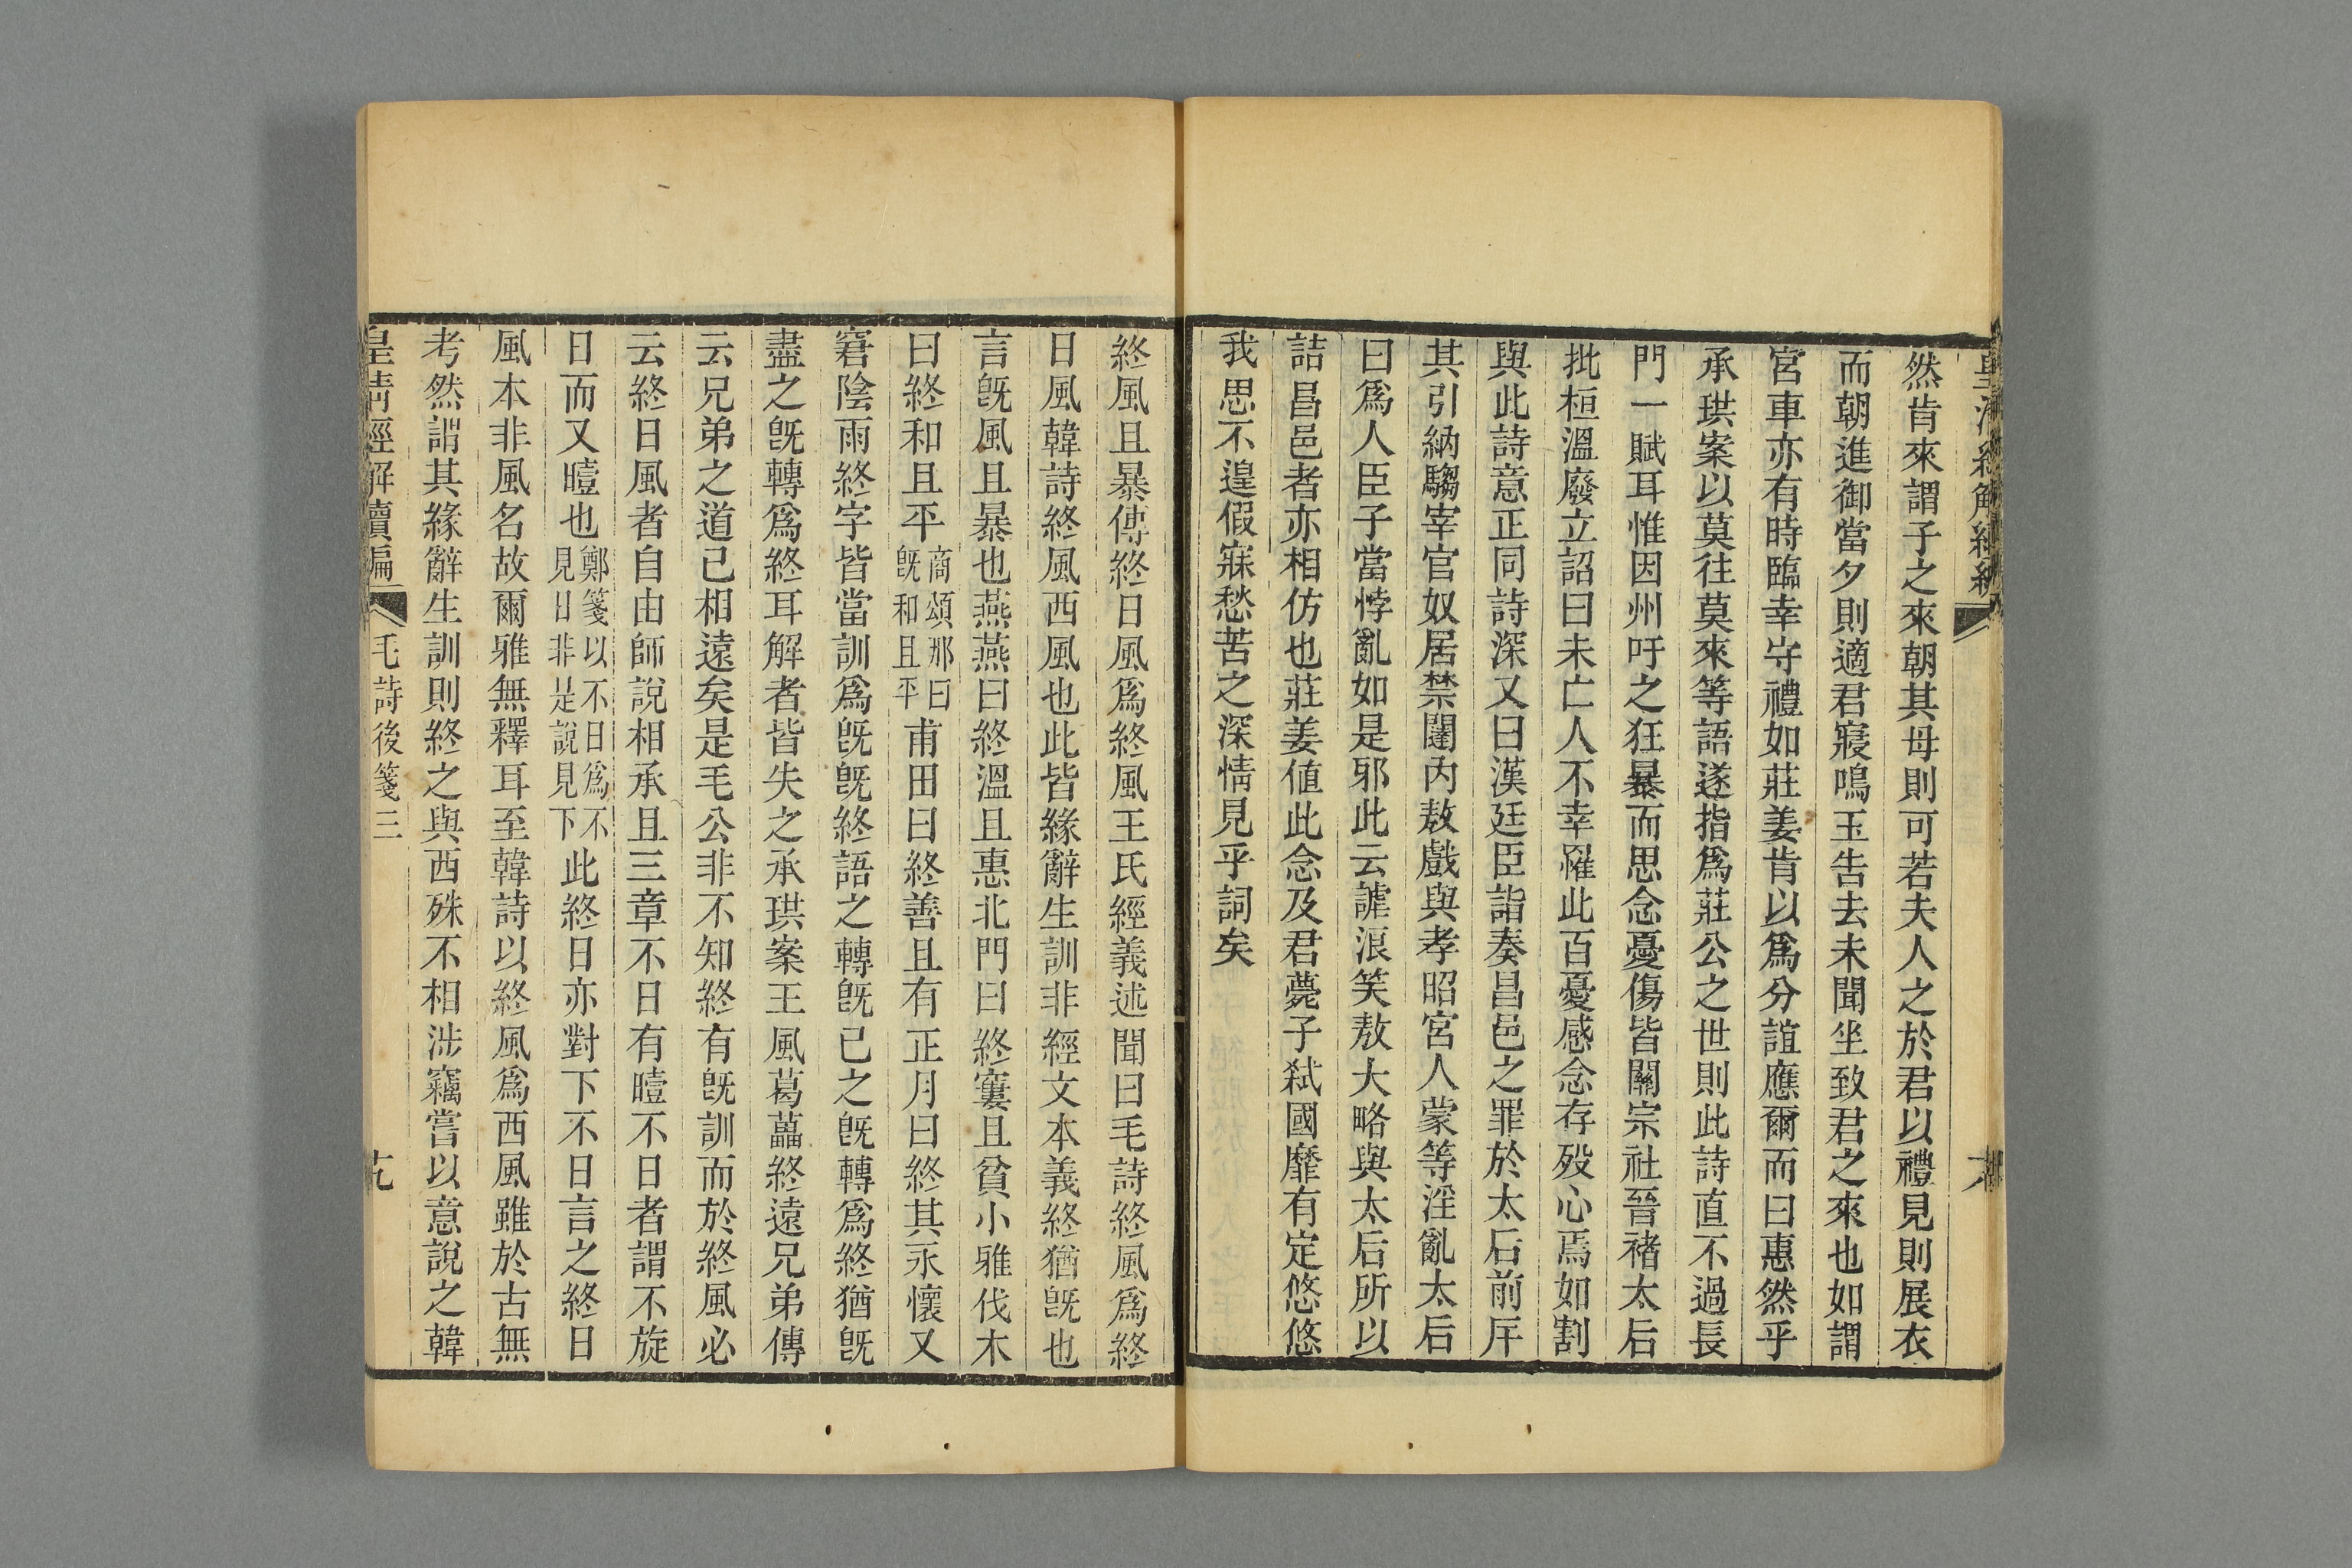 然肯來謂子之來朝其母則可若夫人之於君以禮見則展衣
而朝進御當夕則適君寢鳴玉告去未聞坐致君之來也如謂
宮車亦有時臨幸守禮如莊姜肯以爲分誼應爾而曰惠然乎
承珙案以莫往莫來等語遂指爲莊公之世則此詩直不過長
門一賦耳惟因州吁之狂暴而思念憂傷皆關宗社晉褚太后
批桓溫廢立詔曰未亡人不幸罹此百憂感念存歿心焉如割
與此詩意正同詩深又曰漢廷臣詣奏昌邑之罪於太后前厈
其引納騶宰官奴居禁闥內敖戲與孝昭宮人蒙等淫亂太后
曰爲人臣子當悖亂如是邪此云謔浪笑敖大略與太后所以
詰昌邑者亦相仿也莊姜値此念及君薨子弑國靡有定悠悠
我思不遑假寐愁苦之深情見乎詞矣
終風且暴傳終日風爲終風王氏經義述聞曰毛詩終風爲終
日風韓詩終風西風也此皆緣辭生訓非經文本義終猶旣也
言旣風且暴也燕燕曰終溫且惠北門曰終窶且貧小雅伐木
曰終和且平商頌那曰旣和且平甫田曰終善且有正月曰終其永懷又
窘陰雨終字皆當訓爲旣旣終語之轉旣已之旣轉爲終猶旣
盡之旣轉爲終耳解者皆失之承珙案王風葛藟終遠兄弟傳
云兄弟之道已相遠矣是毛公非不知終有旣訓而於終風必
云終日風者自由師說相承且三章不日有曀不日者謂不旋
日而又曀也鄭箋以不日爲不見日非是說見下此終日亦對下不日言之終日
風本非風名故爾雅無釋耳至韓詩以終風爲西風雖於古無
考然謂其緣辭生訓則終之與西殊不相涉竊嘗以意說之韓
皇淸經解續編
毛詩後箋三